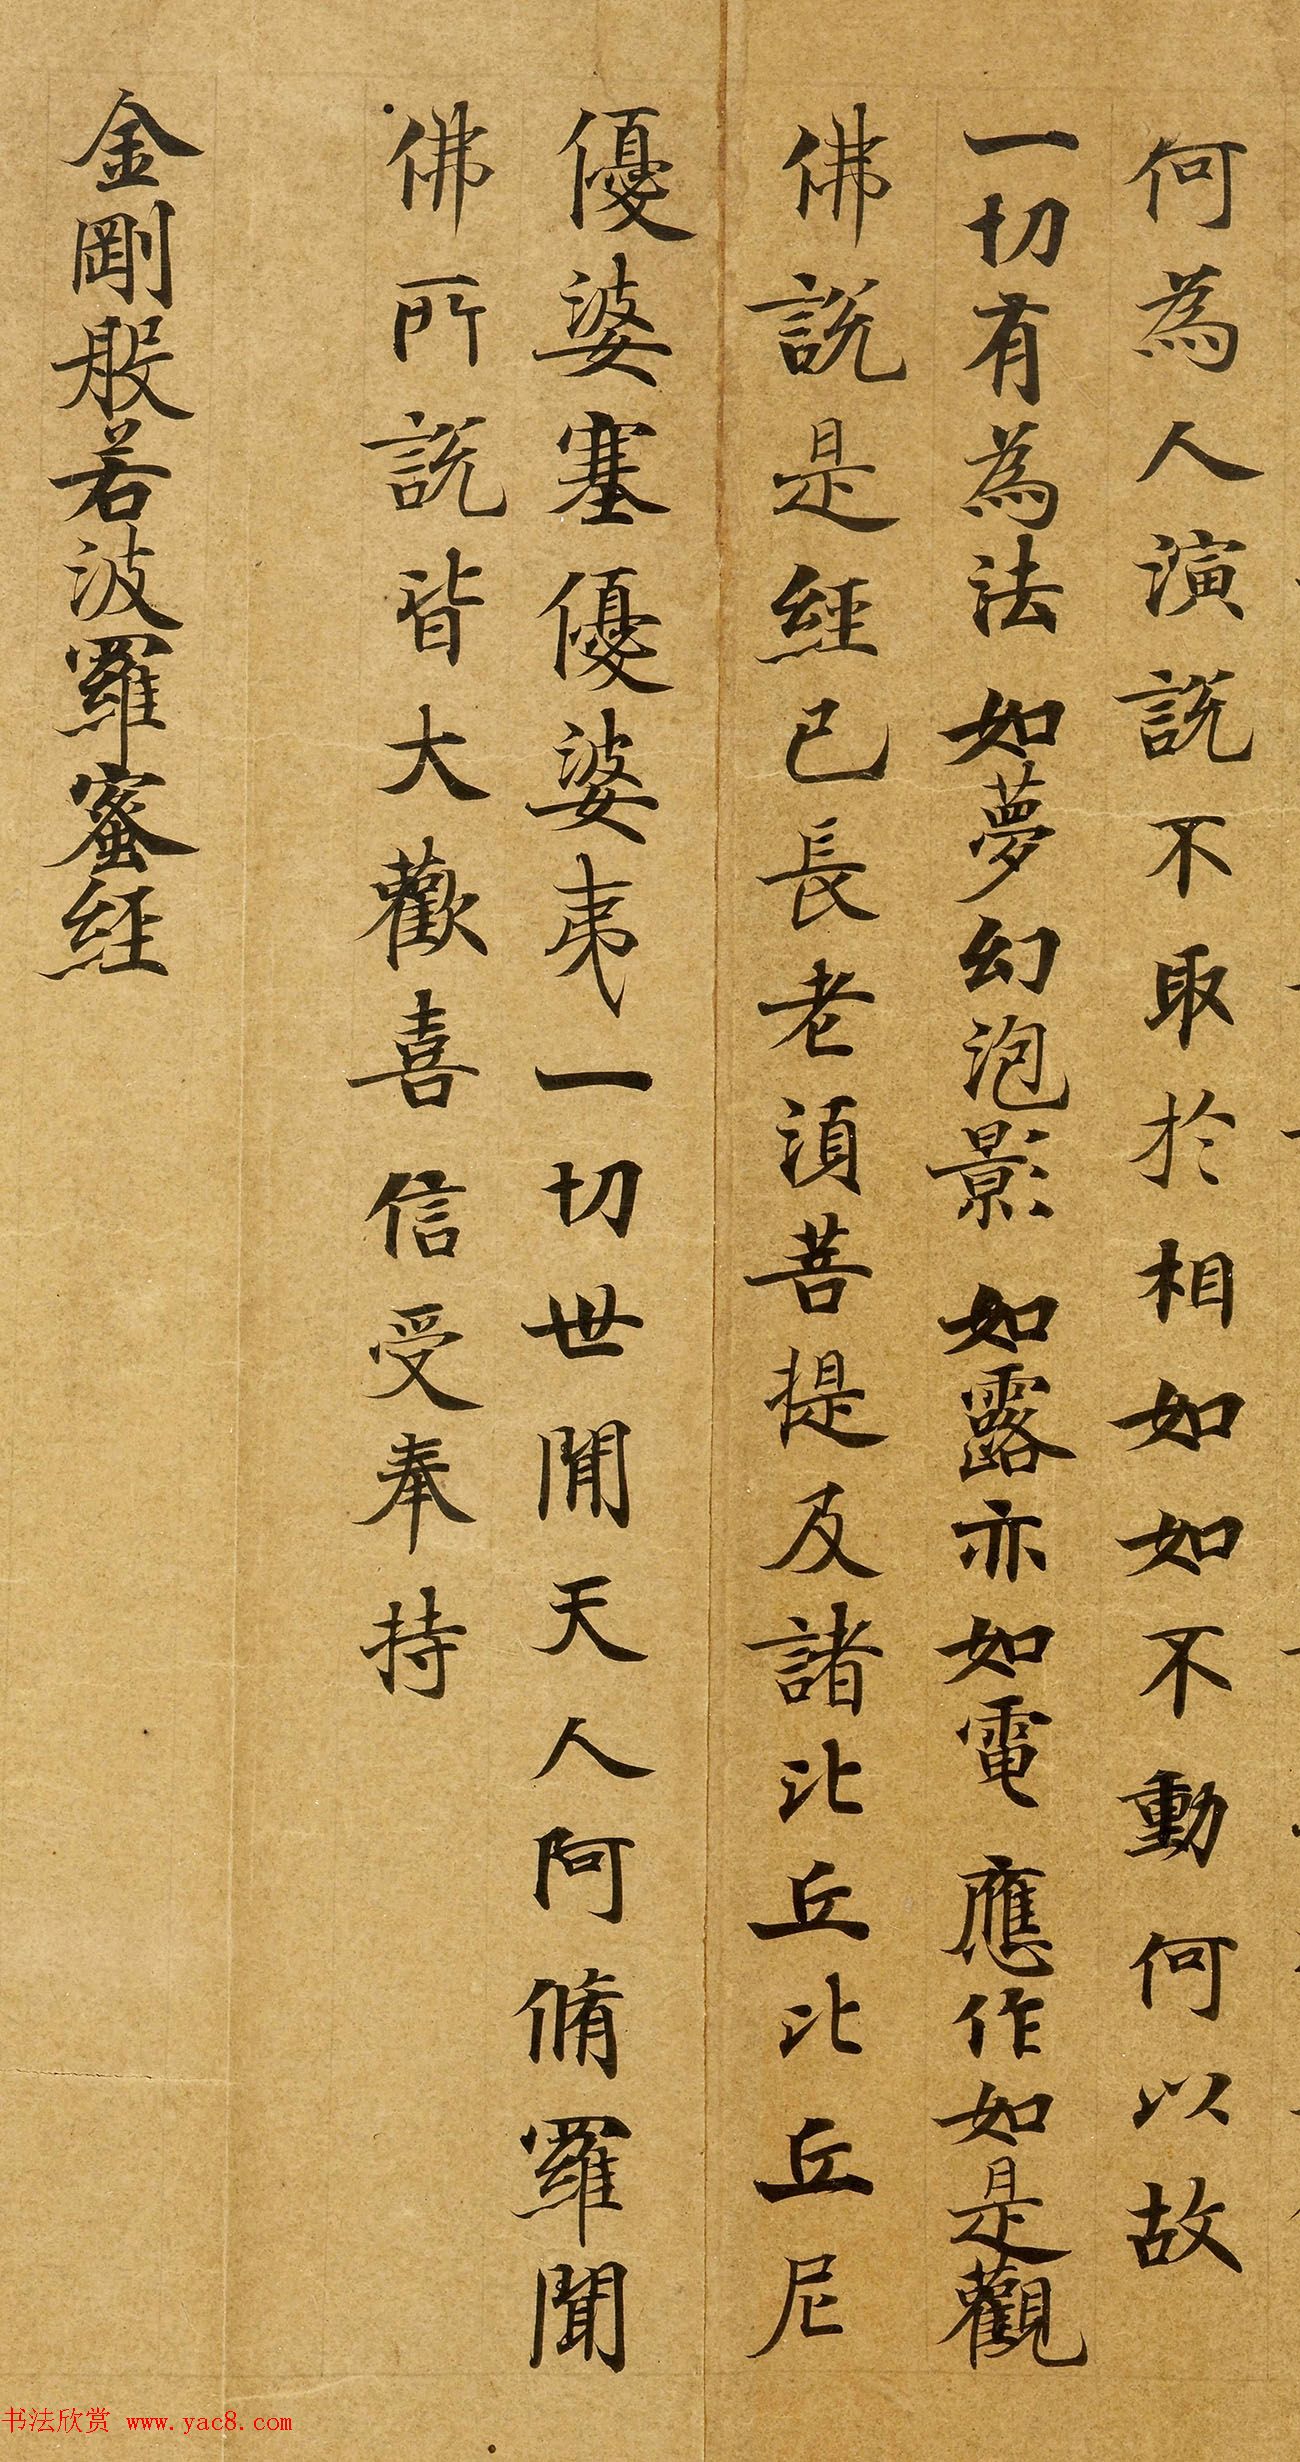 何為人演説不取於相如如不動何以故
一切有為法如夢幻泡影如露亦如電應作如是觀
佛説是經已長老湏菩提及諸比丘比丘尼
優婆塞優婆夷一切世閒天人阿脩羅聞
佛所説皆大歡喜信受奉持
金剛般若波羅蜜經
书法欣赏 www.yac8.com